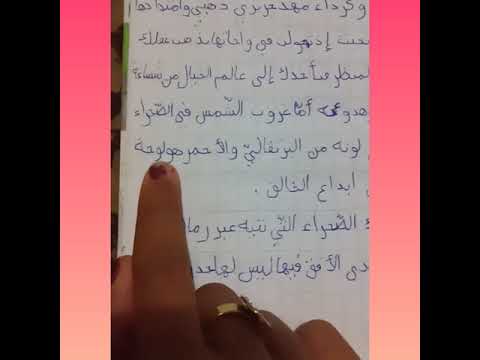 وكرداء مهد عزيزي ذهبي وامتدادها
بحيث إذ تجولت في واحاتها يذهب عقلك
لمنظر فسأخدك إلى عالم الخيال من شساعة
هدوء أما غروب الشّمس في الصّحراء
لونه من البرتقاليّ والأحمر هو لوحة
ابداع الخالق .
الصّحراء التّي نتيه عبر رما
دى الأفق فيها ليس لها حد